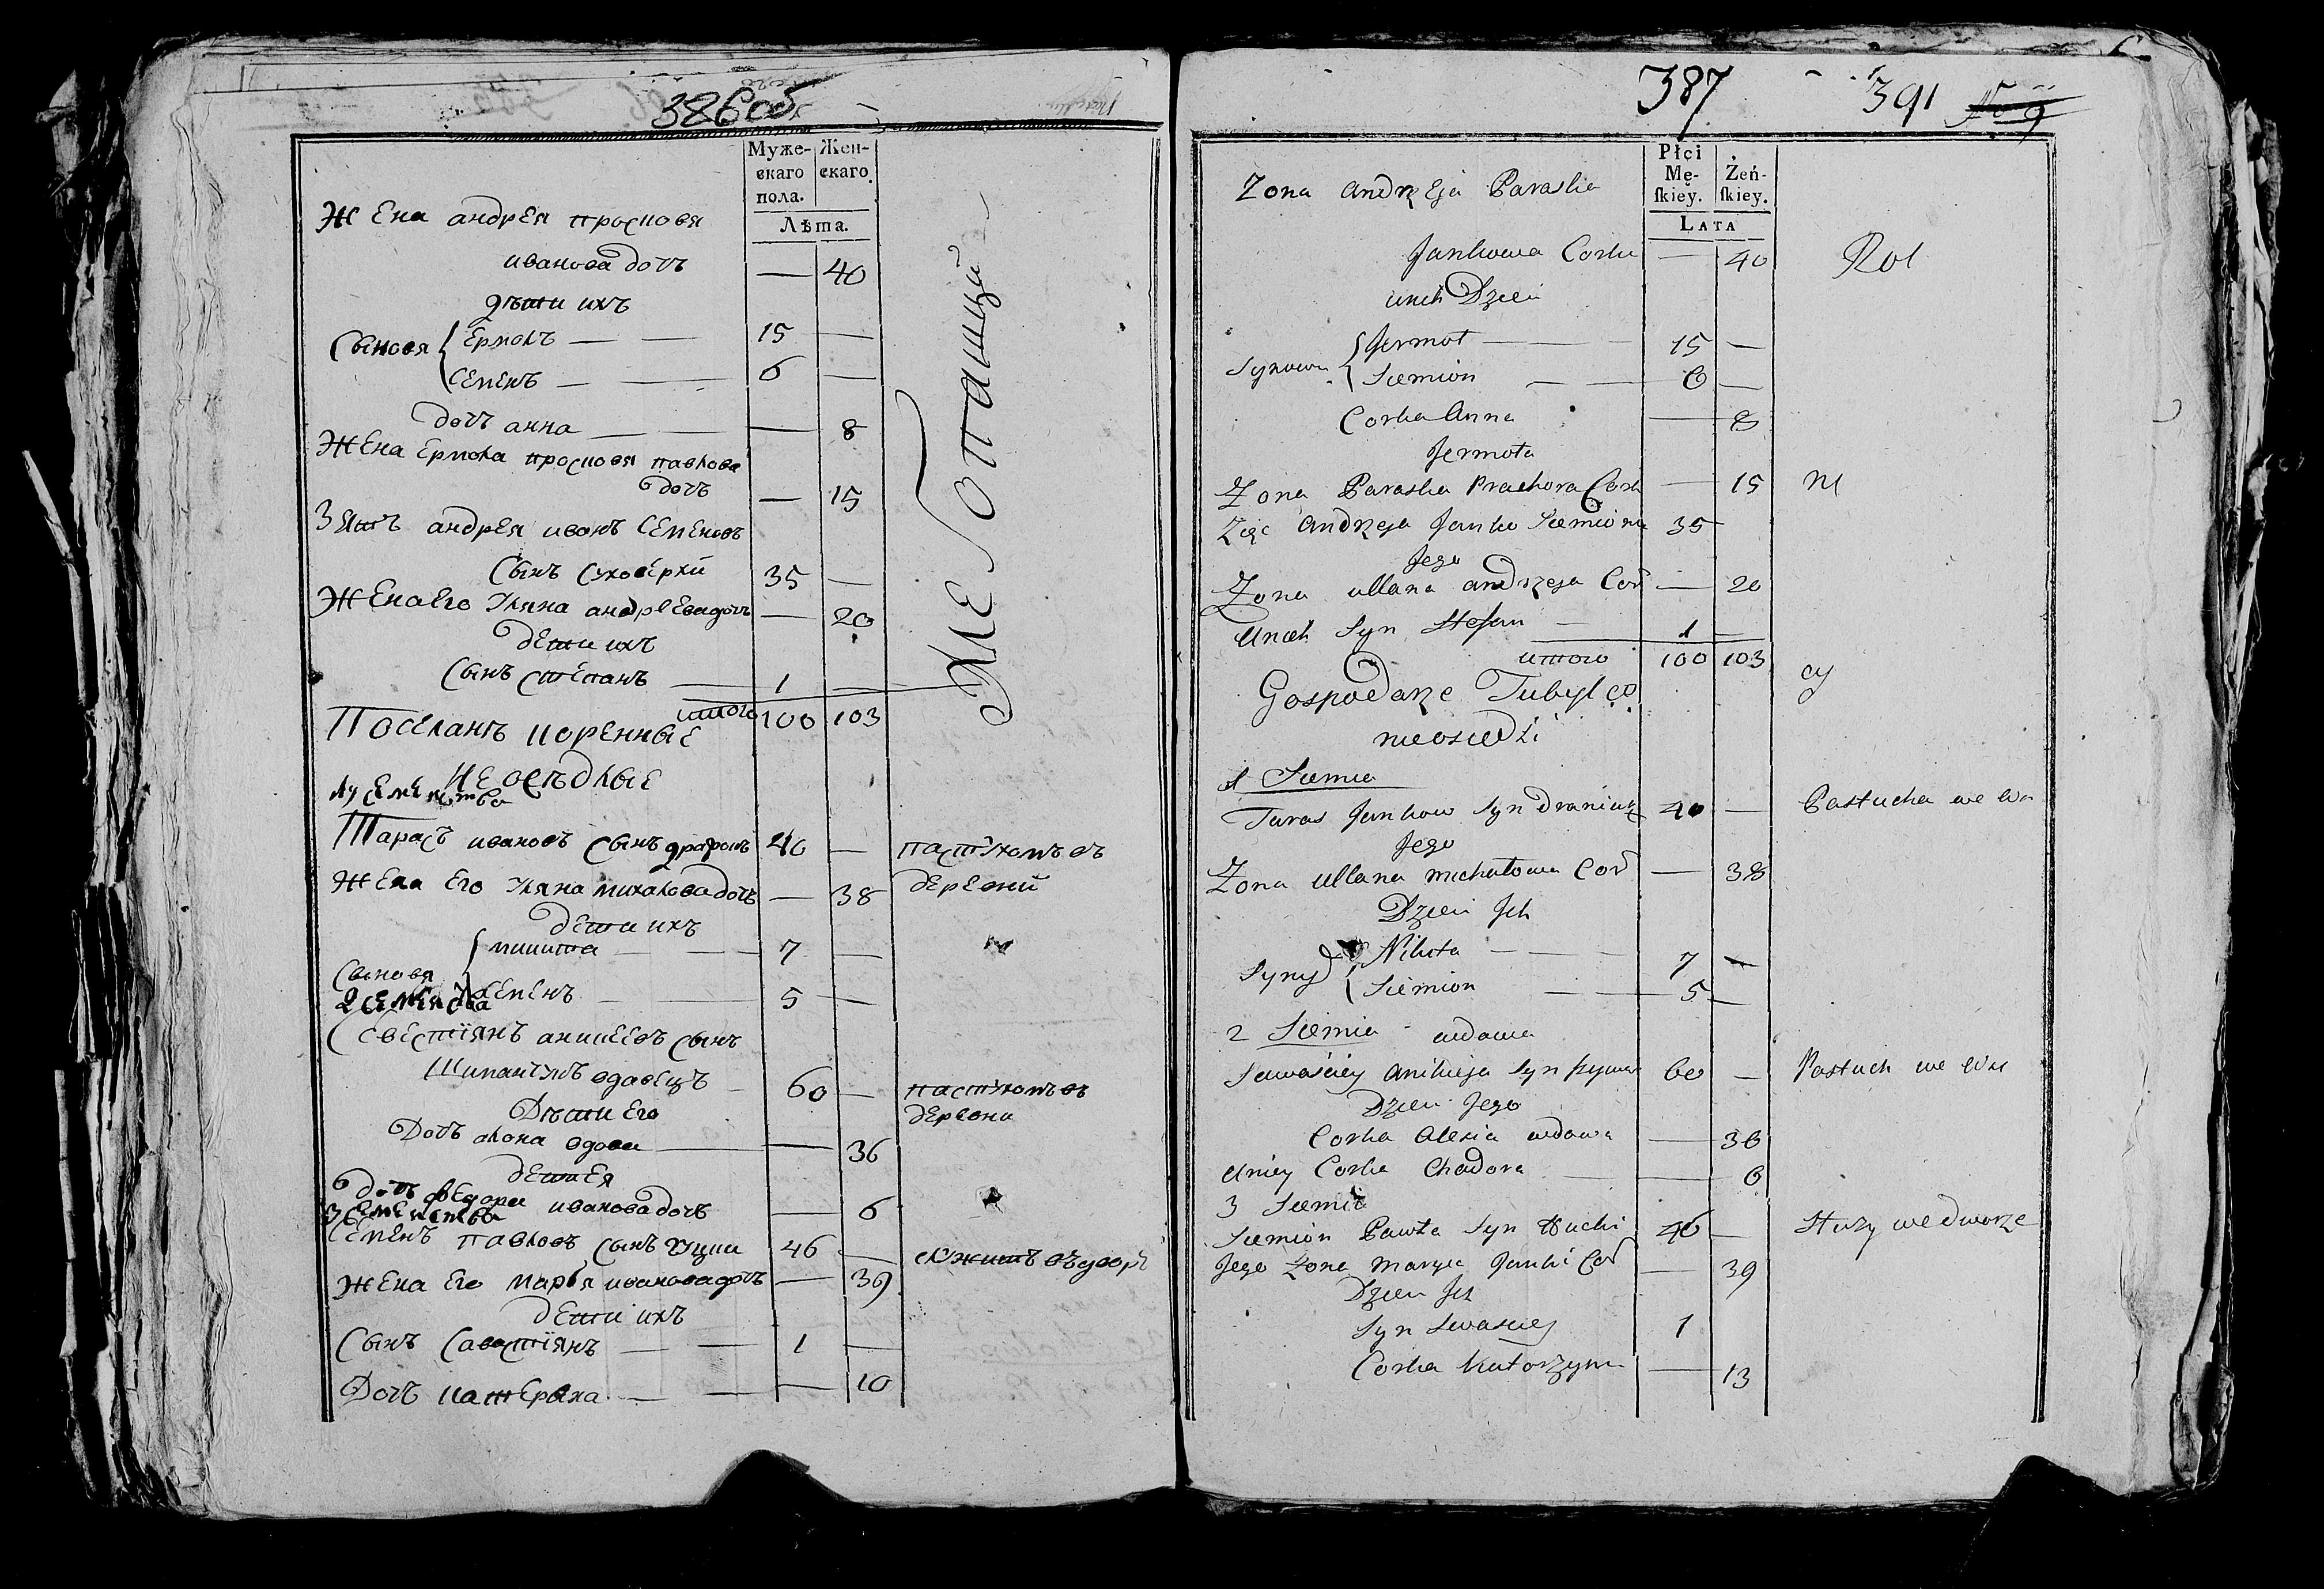 386 об
Муже-
скаго
пола.
Жен-
скаго.
Лѣта.
Жена андрея просковя
иванова дочъ — 40
дѣти ихъ
Сыновя
Ермолъ — — 15 —
Семенъ — — 6 —
дочъ анна — — — 8
Жена Ермола просковя павлова
дочъ — 15
Зятъ андрея иванъ Семеновъ
Сынъ 35 —
Жена Его Уляна андреева дочъ — 20
дети ихъ
Сынъ Степанъ — 1 —
итого 100 103
Поселанъ коренные
Неоседлые
Тарасъ ивановъ Сынъ 40 — пастухомъ въ
Жена Его Уляна михалова дочъ — 38 деревни
дети ихъ
Сыновя
микита — — 7 —
Семенъ — 5 —
2 Семенства
Севестіянъ аникеевъ Сынъ
вдовецъ — 60 — пастухомъ въ
Дѣти Его деревни
Дочъ алена вдова — — 36
дети Ея
дочъ федора иванова дочъ — 6
3 Семенства
Семенъ павловъ Сынъ 46 — служитъ въ дворе
Жена Его Марья иванова дочъ — 39
дети ихъ
Сынъ Савастіянъ — — 1 —
Дочъ катерына — — — 10
387
391
No 9
Płci
Mę-
skiey.
Żeń-
skiey.
LATA
Zona Andrzeja Paraska
Jankowa Corka — 40
unich Dzieci
Synowie
Jermoł — — 15 —
Siemion — — 6 —
Corka Anna — 8
Jermoła
Zona Paraska Prachora Cork — 15
Zięc Andrzeja Janko Siemiona 35
Jego
Zona ullana Andrzeja Cor — 20
Unich Syn Stefan — 1 —
итого 100 103
Gospodarze Tubylco
nieosiedli
1 Siemia
Taras Jankow Syn 40 — Pastucha we wsi
Jego
Zona Ullana michałowa Cor — 38
Dzieci Jch
Syny
Nikita — — 7 —
Siemion — — 5 —
2 Siemia wdowa
Anikieja Syn 60 — Pastuch we wsi
Dzieci Jego
Corka Alexia wdowa — 36
Uniey Corka Chadora — — 6
3 Siemia
Siemion Pawła Syn 46 — Służy we dworze
Jego Zona Marya Janki Cor — 39
Dzieci Jch
Syn 1
Corka Katarzyna — 13